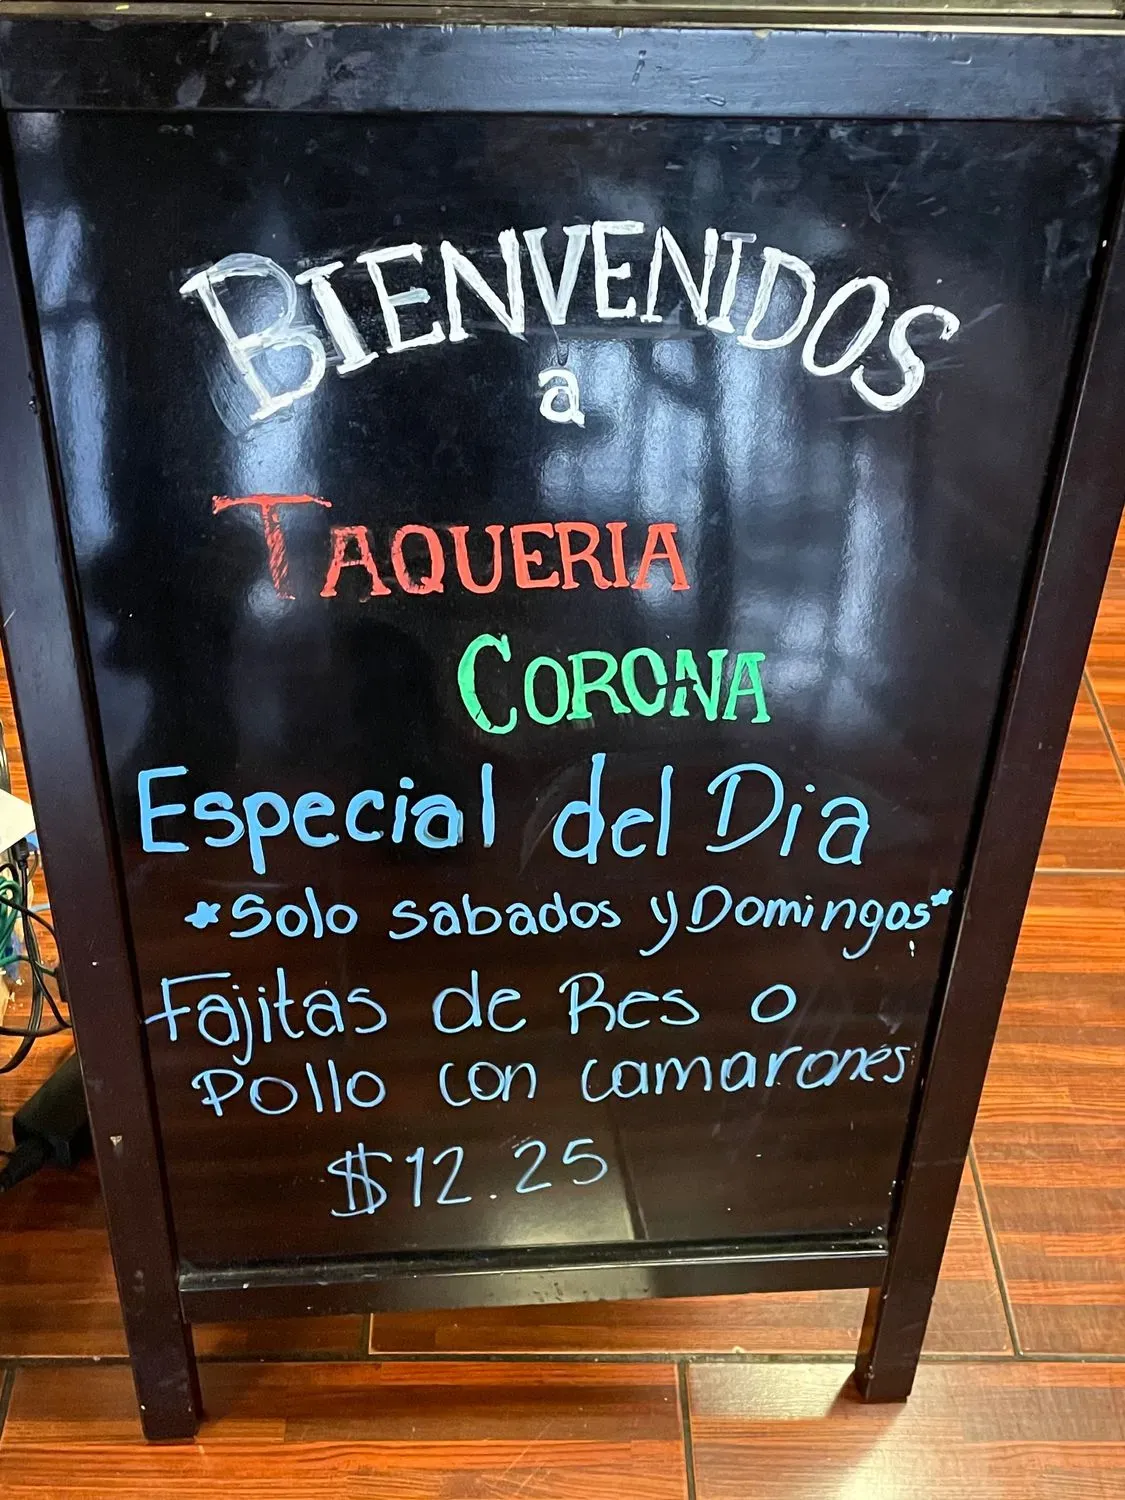 BIENVENIDOS
a
TAQUERIA
CORONA
Especial del Dia
*Solo sabados y Domingos*
Fajitas de Res o
Pollo con camarones
$12.25